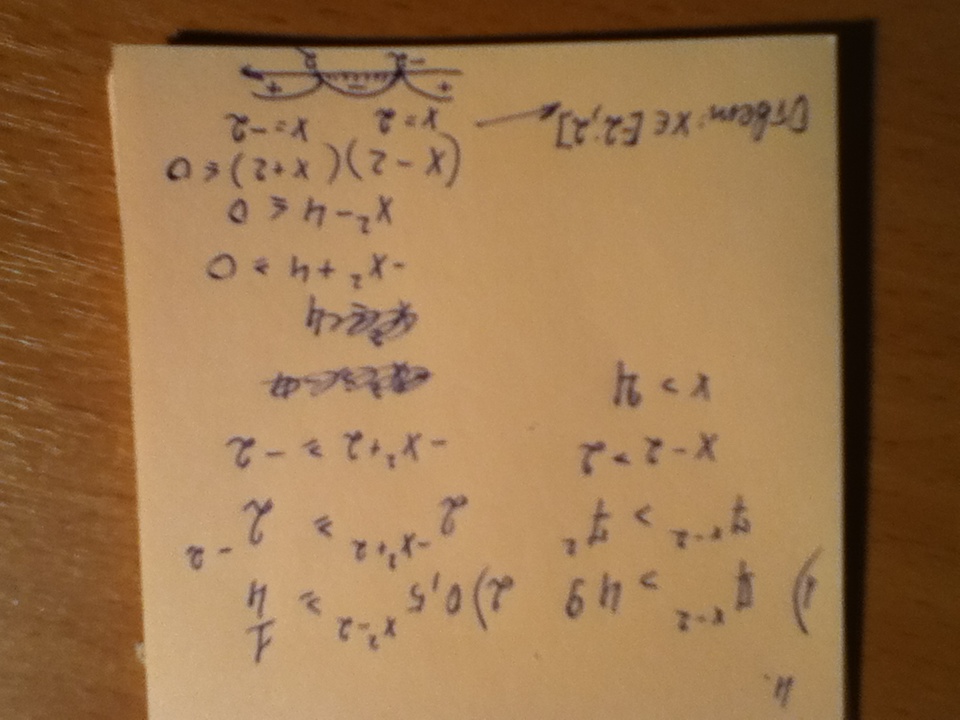 4.
1) 7^(x-2) > 49
7^(x-2) > 7^2
x - 2 > 2
x > 4
2) 0,5^(x^2-2) ≥ 1/4
2^(-x^2+2) ≥ 2^(-2)
-x^2+2 ≥ -2
-x^2 + 4 ≥ 0
x^2 - 4 ≤ 0
(x - 2)(x + 2) ≤ 0
x = 2 x = -2
+ - +
-2 2
Ответ: x ∈ [-2; 2]